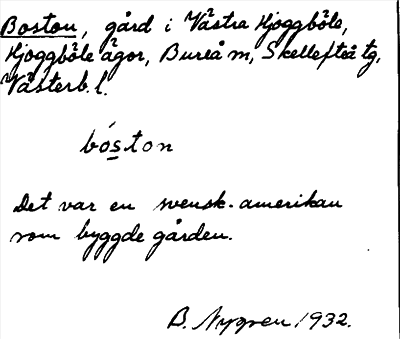 Boston, gård i Västra Hjoggböle,
Hjoggböle ägor, Bureå m, Skellefteå tg,
Västerb. l.
bóston
Det var en svensk-amerikan
som byggde gården.
B. Nygren 1932.